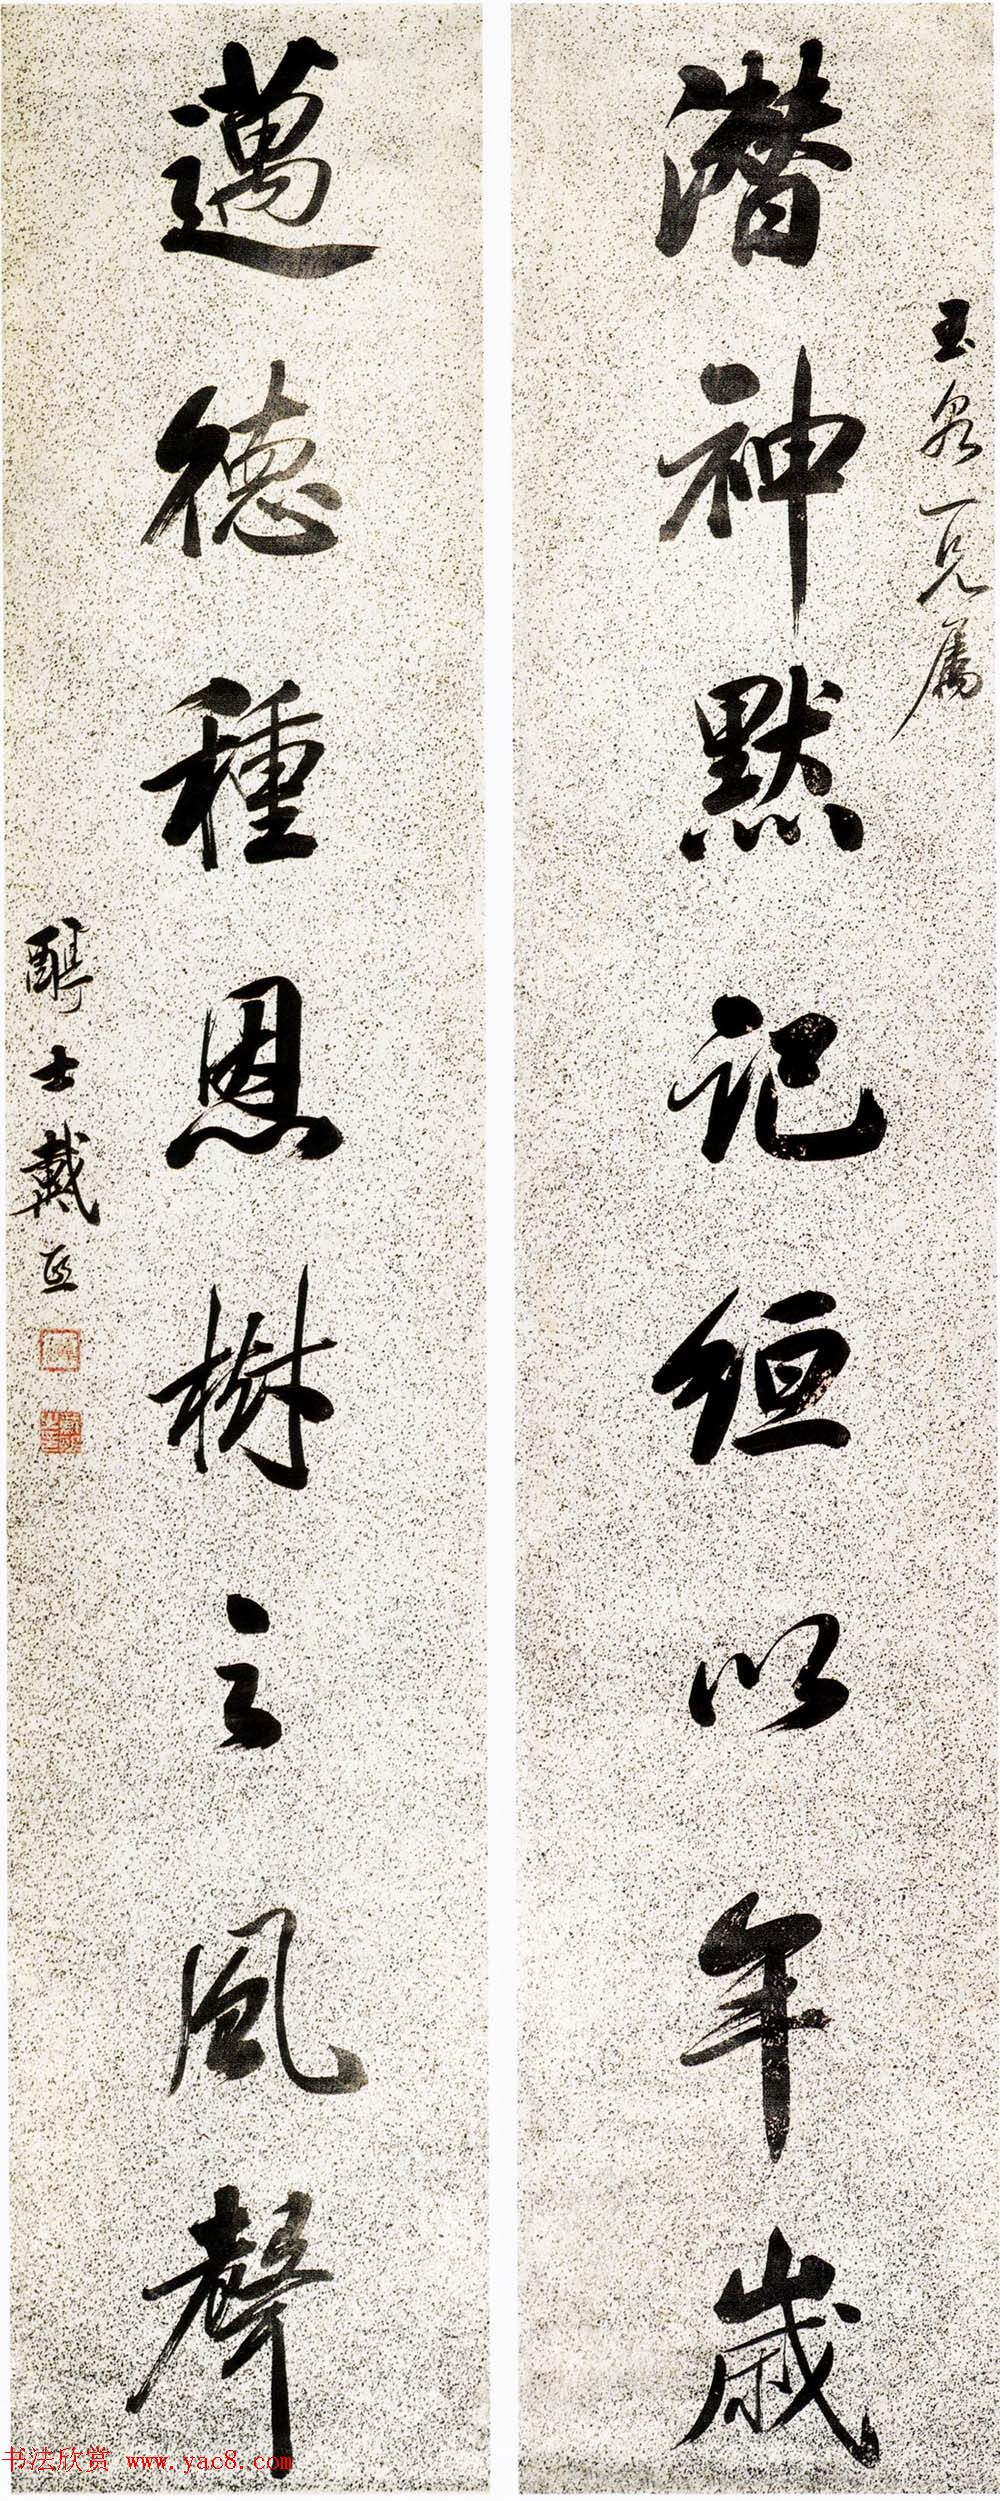 玉泉一兄属
潜神默记縆以年岁
邁德種恩樹之風聲
醇士戴熙
书法欣赏 www.yac8.com